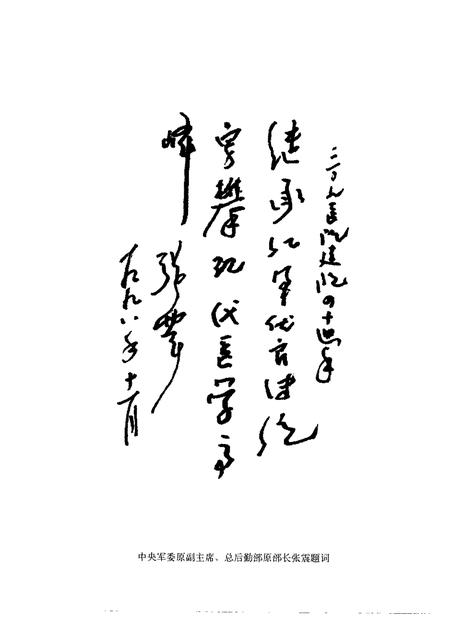 三〇九医院建院四十周年
继承红军优良传统
勇攀现代医学高
峰
张震
一九九八年十一月
中央军委原副主席、总后勤部原部长张震题词